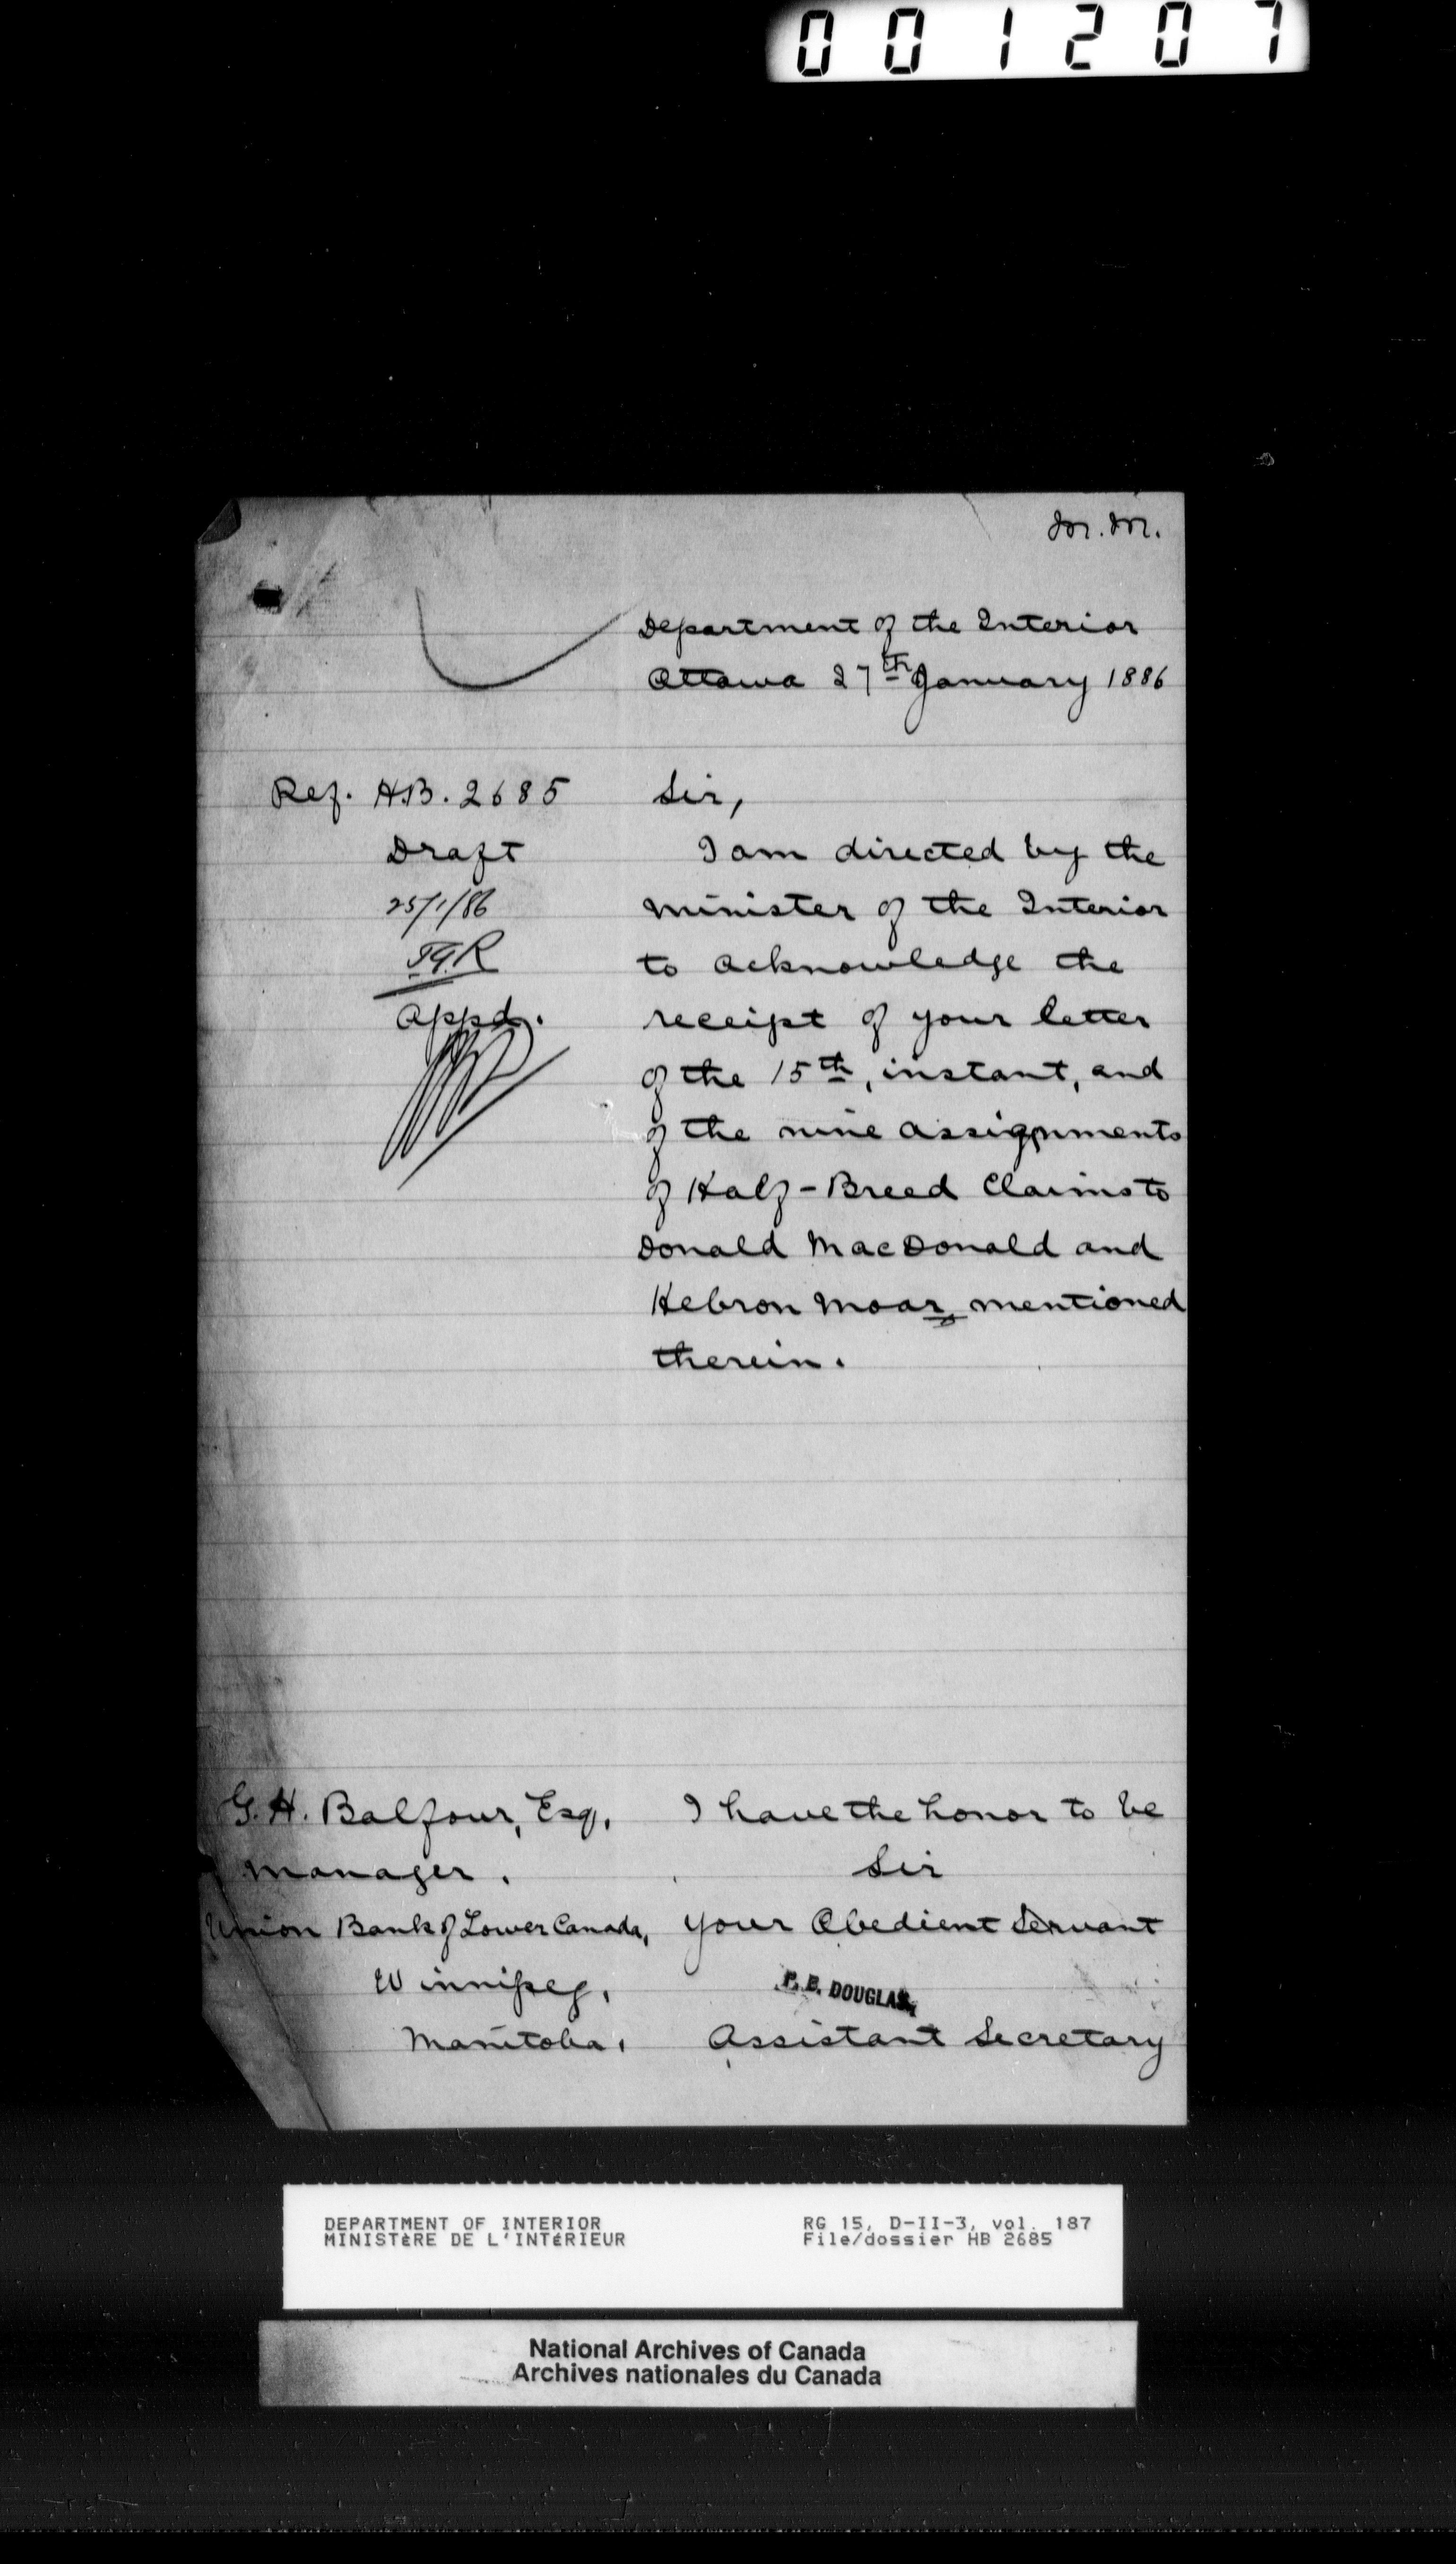 001207
M.M.
Department of the Interior
Ottawa 27th January 1886
Ref. H.B. 2685
Draft
25/1/86
Appd.
Sir,
I am directed by the
Minister of the Interior
to acknowledge the
receipt of your letter
of the 15th, instant, and
of the nine assignments
of Half-Breed Claims to
Donald MacDonald and
Hebron Moar, mentioned
therein.
G. H. Balfour, Esq,
Manager.
Union Bank of Lower Canada,
Winnipeg,
Manitoba,
I have the honor to be
Sir
Your Obedient Servant
P. B. DOUGLAS,
Assistant Secretary
DEPARTMENT OF INTERIOR
MINISTÈRE DE L'INTÉRIEUR
RG 15, D-II-3, vol. 187
File/dossier HB 2685
National Archives of Canada
Archives nationales du Canada